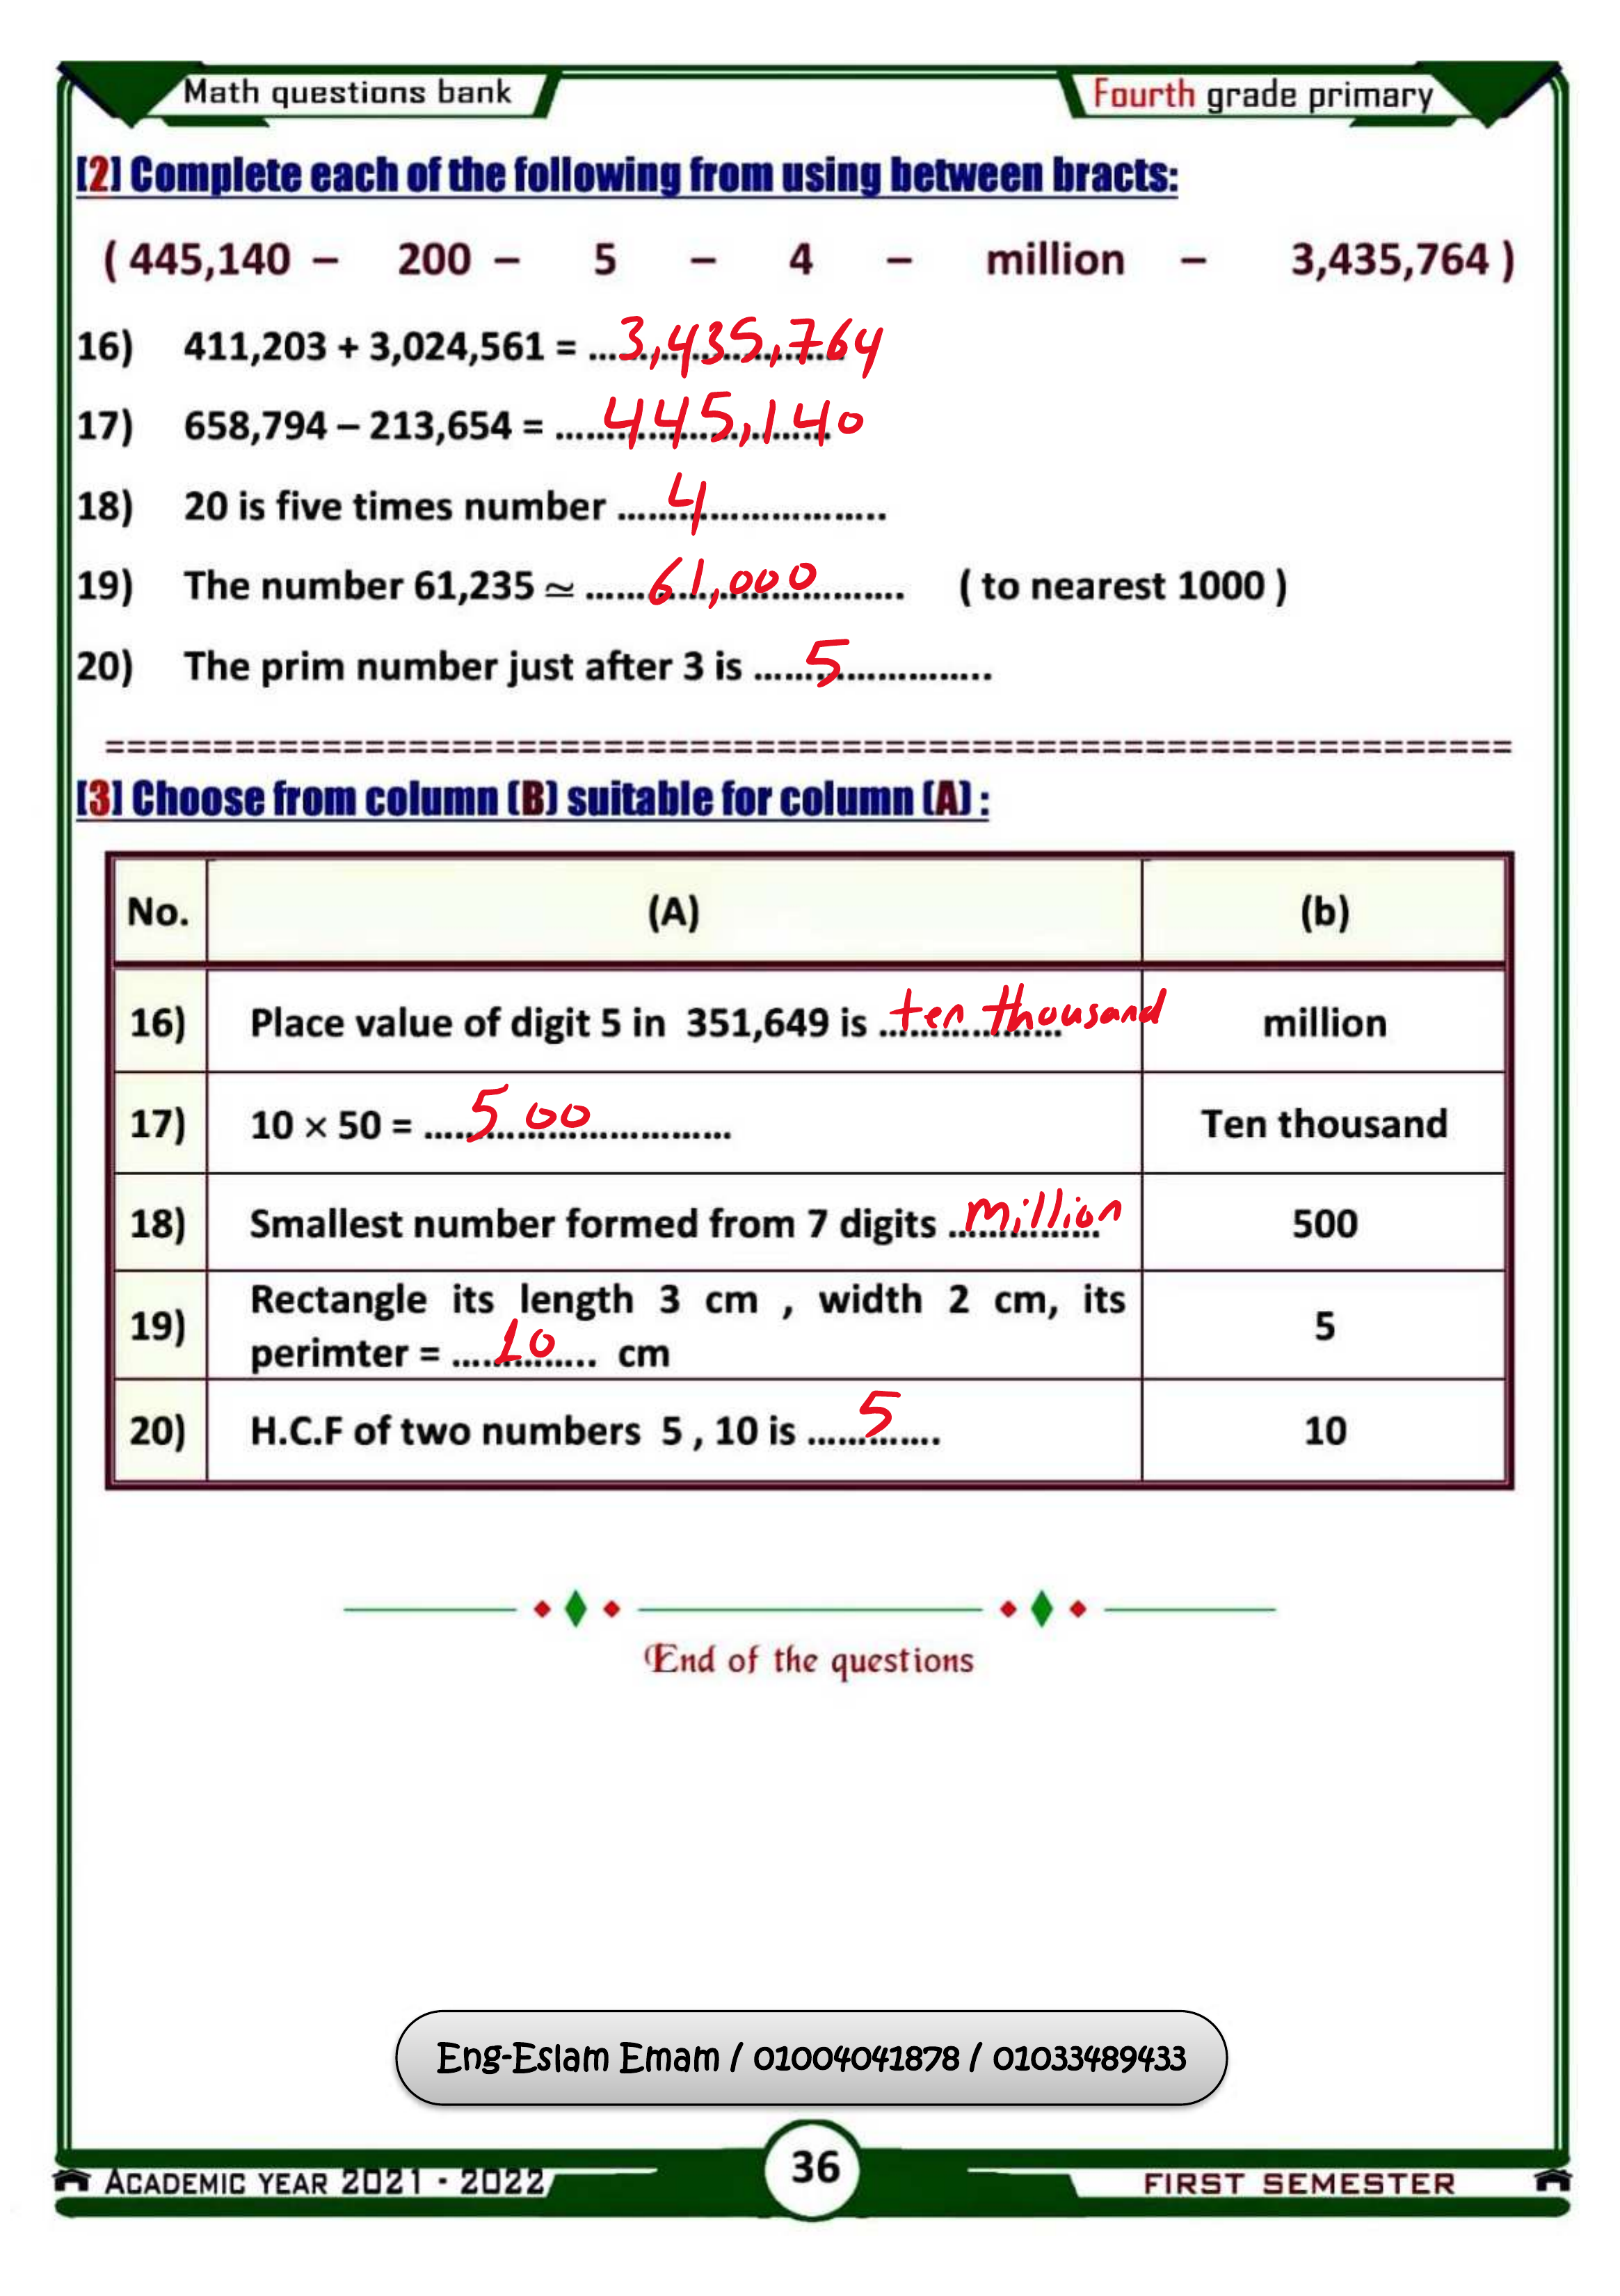 Math questions bank
Fourth grade primary
[2] Complete each of the following from using between bracts:
( 445,140 – 200 – 5 – 4 – million – 3,435,764 )
16) 411,203 + 3,024,561 = ........................ 3,435,764
17) 658,794 – 213,654 = ........................ 445,140
18) 20 is five times number ........................ 4
19) The number 61,235 ≃ ........................ 61,000 ( to nearest 1000 )
20) The prim number just after 3 is ........................ 5
[3] Choose from column (B) suitable for column (A) :
No. (A) (b)
16) Place value of digit 5 in 351,649 is .................. ten thousand million
17) 10 × 50 = ........................ 500 Ten thousand
18) Smallest number formed from 7 digits ................ million 500
19) Rectangle its length 3 cm , width 2 cm, its
perimter = .............. 10 cm 5
20) H.C.F of two numbers 5 , 10 is ............. 5 10
End of the questions
Eng-Eslam Emam / 01004041878 / 01033489433
36
ACADEMIC YEAR 2021 - 2022
FIRST SEMESTER